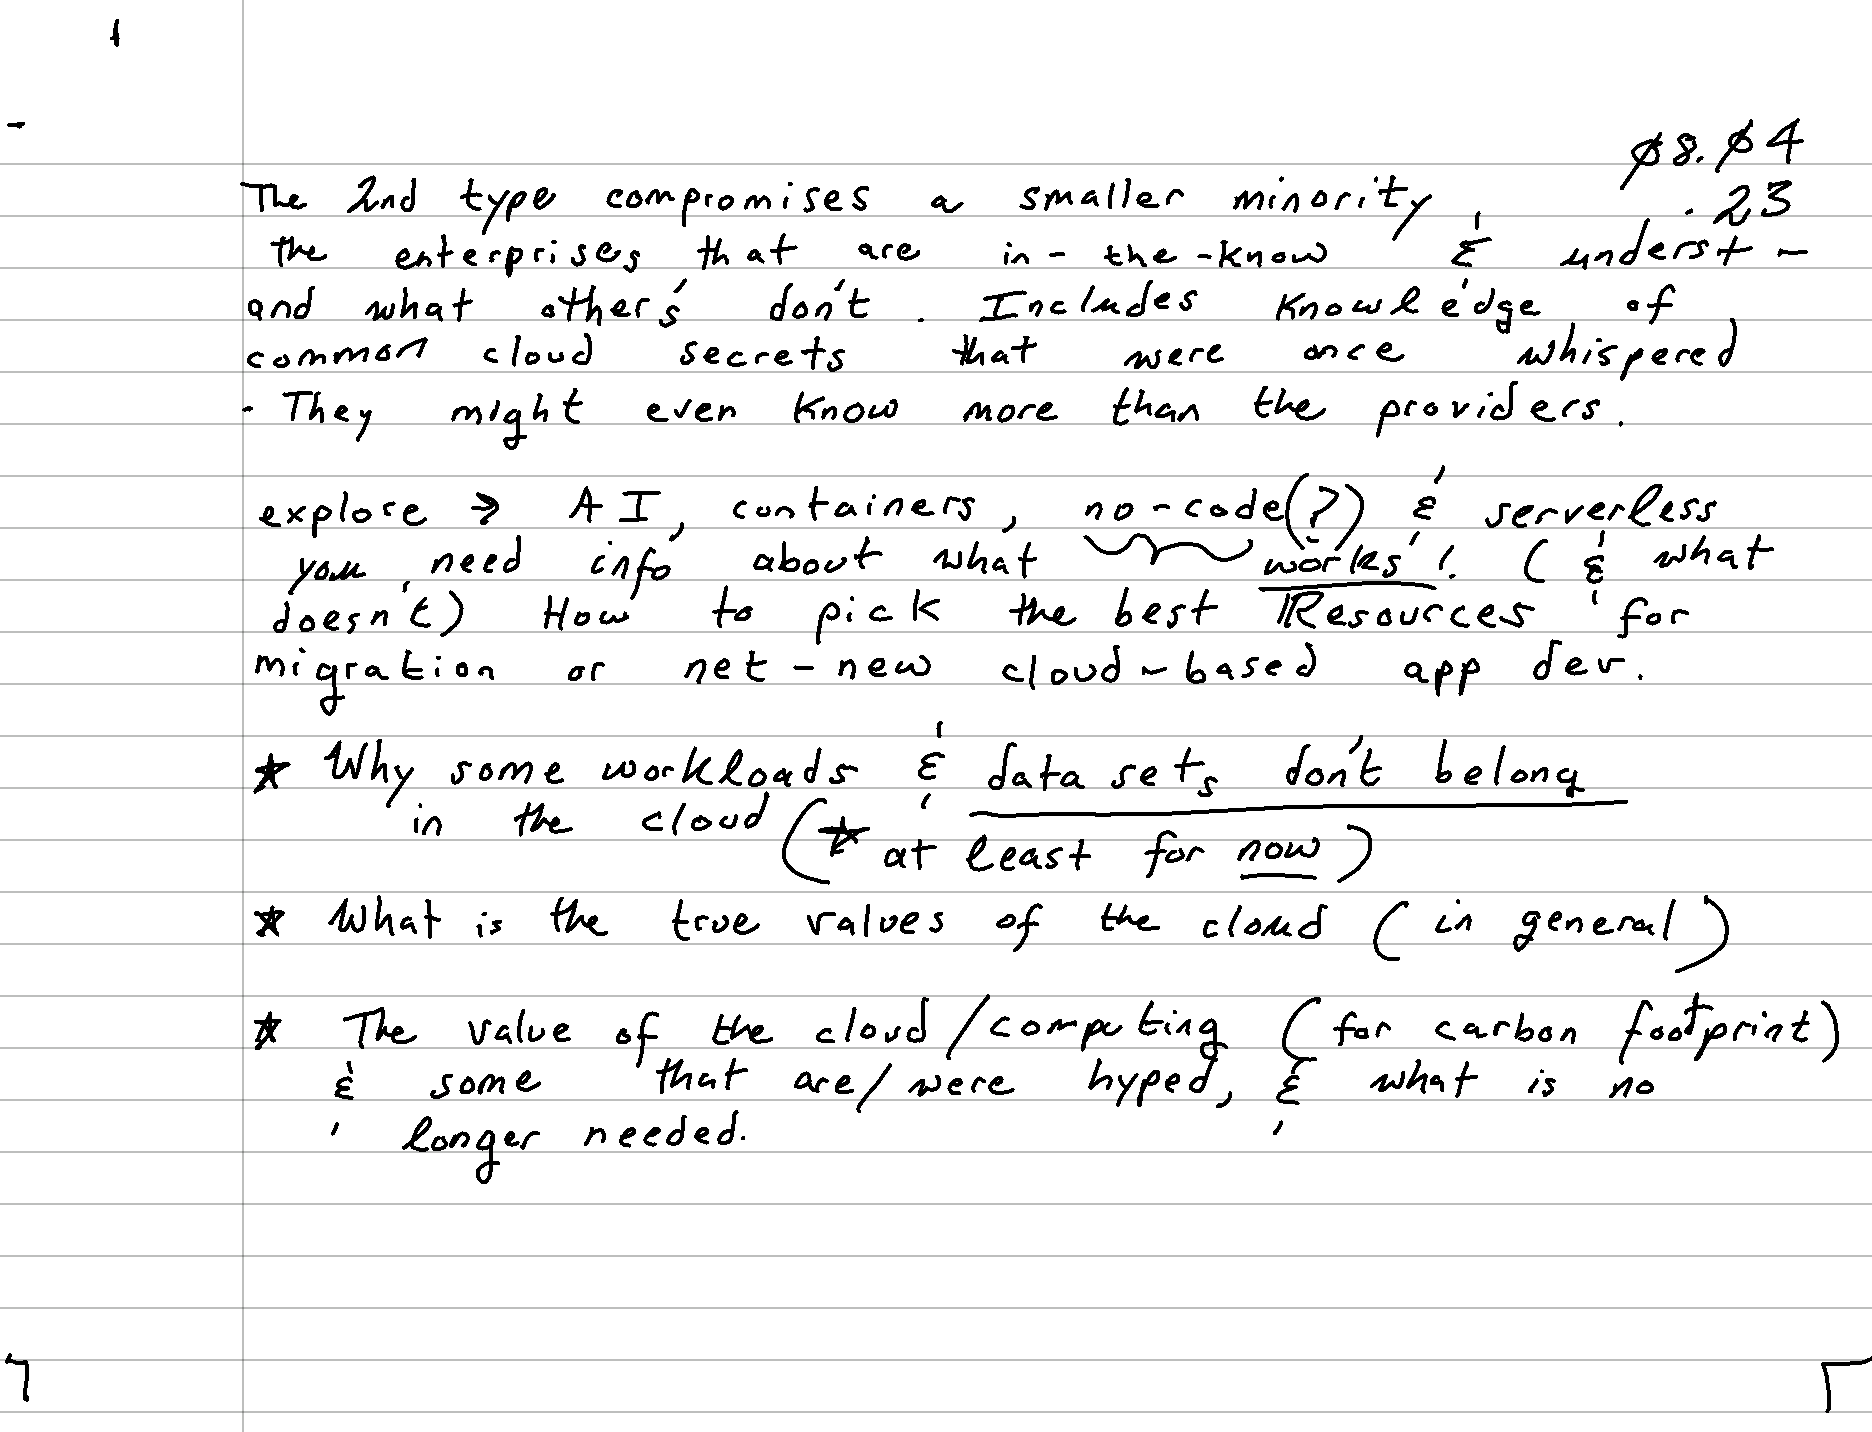 08.04
.23
The 2nd type compromises a smaller minority
the enterprises that are in-the-know & underst-
and what other's don't. Includes knowledge of
common cloud secrets that were once whispered
- They might even know more than the providers.
explore → AI, containers, no-code(?) & serverless
you need info about what works! (& what
doesn't) How to pick the best Resources for
migration or net-new cloud-based app dev.
★ Why some workloads & data sets don't belong
in the cloud (★ at least for now)
★ What is the true values of the cloud (in general)
★ The value of the cloud/computing (for carbon footprint)
& some that are/were hyped, & what is no
longer needed.